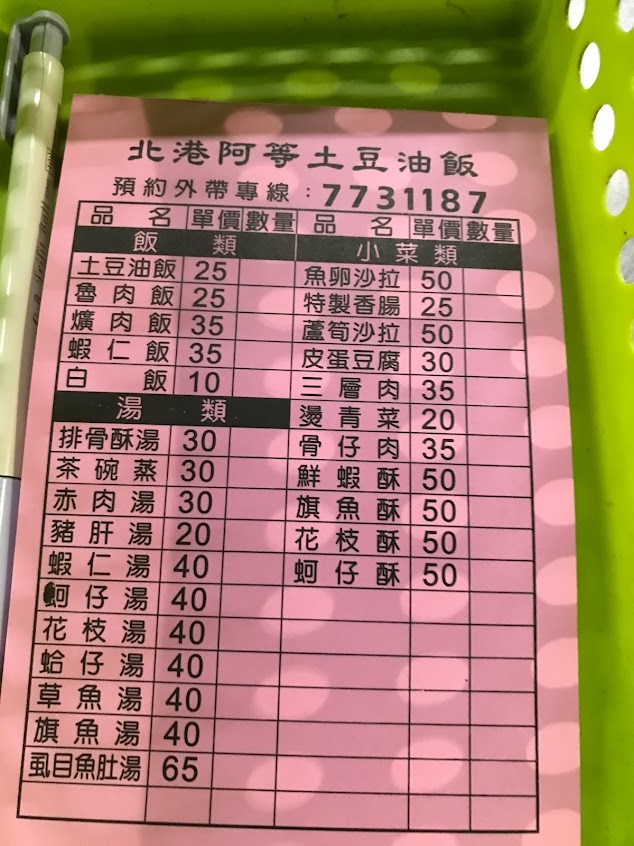 北港阿等土豆油飯
預約外帶專線：7731187
品名 單價 數量 品名 單價 數量
飯類
土豆油飯 25
魯肉飯 25
爌肉飯 35
蝦仁飯 35
白飯 10
湯類
排骨酥湯 30
茶碗蒸 30
赤肉湯 30
豬肝湯 20
蝦仁湯 40
蚵仔湯 40
花枝湯 40
蛤仔湯 40
草魚湯 40
旗魚湯 40
虱目魚肚湯 65
小菜類
魚卵沙拉 50
特製香腸 25
蘆筍沙拉 50
皮蛋豆腐 30
三層肉 35
燙青菜 20
骨仔肉 35
鮮蝦酥 50
旗魚酥 50
花枝酥 50
蚵仔酥 50